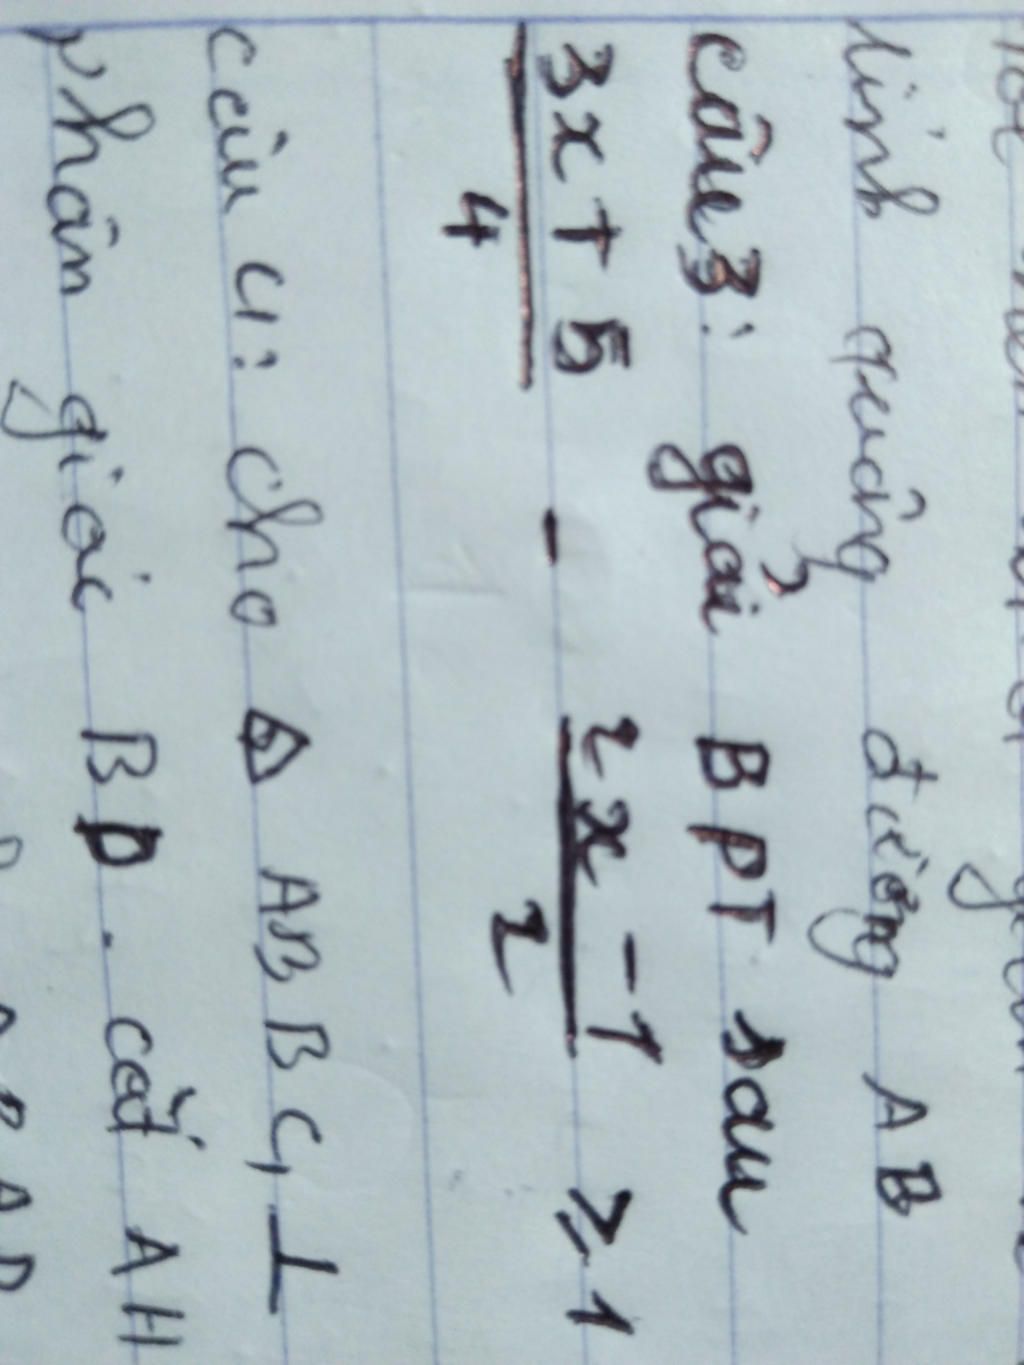 tính quãng đường AB
Câu 3: giải BPT sau
3x + 5 - 2x - 1 ≥ 1
4 2
Câu 4: Cho Δ ABBC, ⊥
phân giác BD. cắt AH